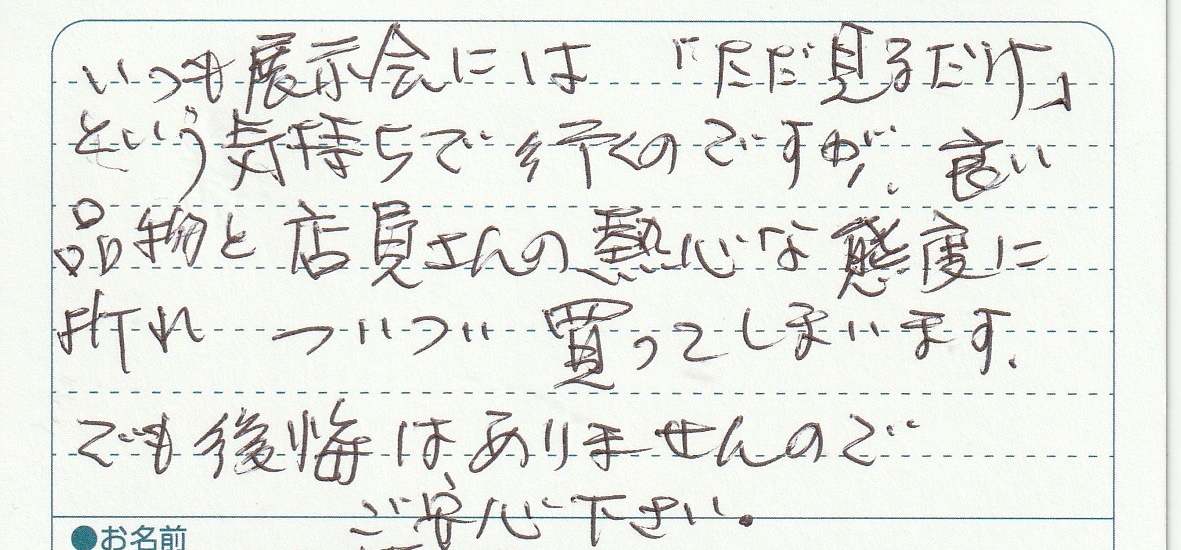 いつも展示会には 「ただ見るだけ」
という気持ちで行くのですが、良い
品物と店員さんの熱心な態度に
折れ ついつい 買ってしまいます.
でも後悔はありませんので
ご安心下さい。
●お名前